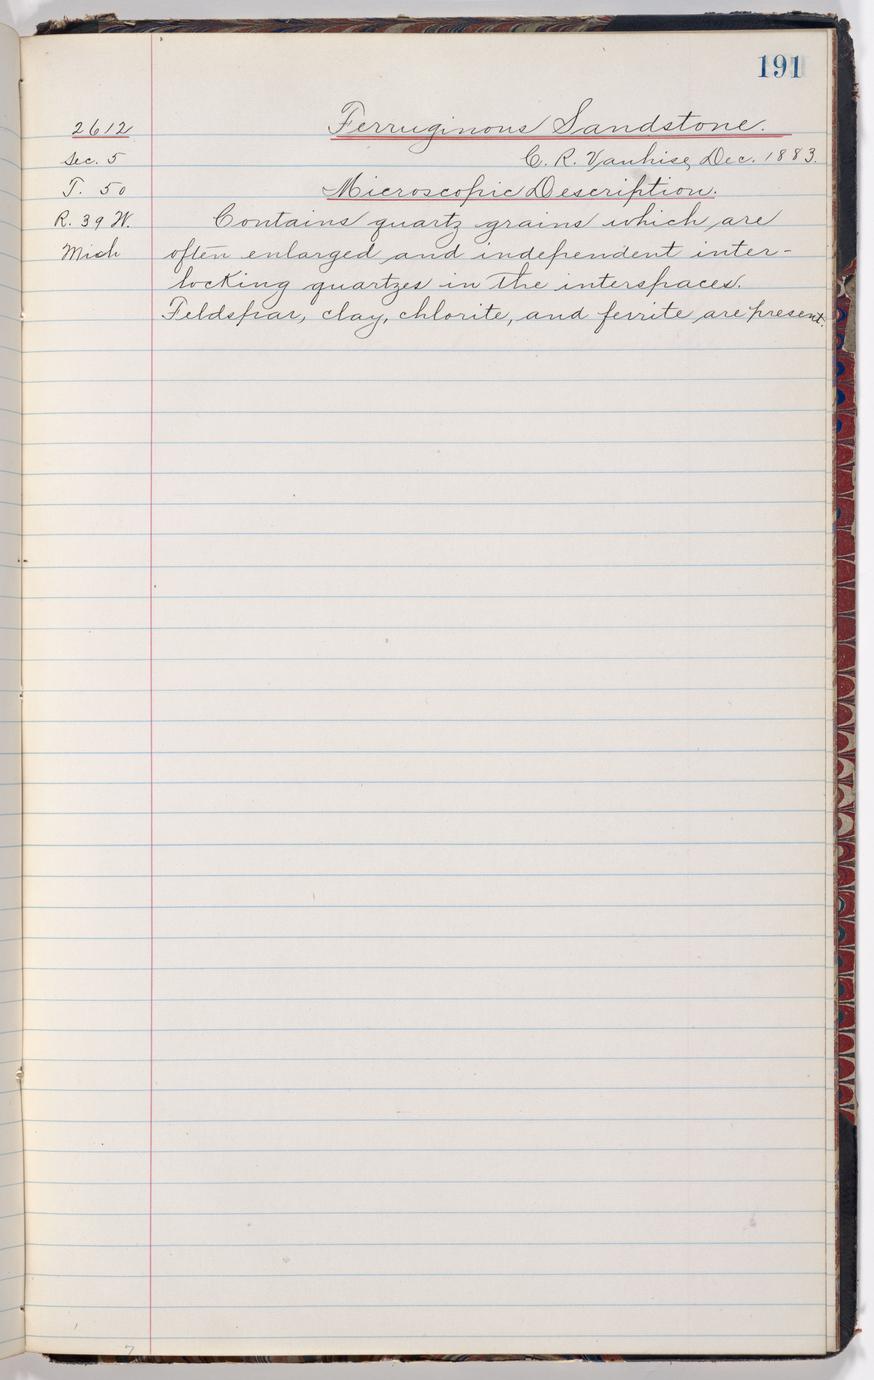 191
2612 Ferruginous Sandstone.
Sec. 5 C. R. Vanhise, Dec. 1883.
T. 50 Microscopic Description.
R. 39 W. Contains quartz grains which are
Mich often enlarged and independent inter-
locking quartzes in the interspaces.
Feldspar, clay, chlorite, and ferrite are present.